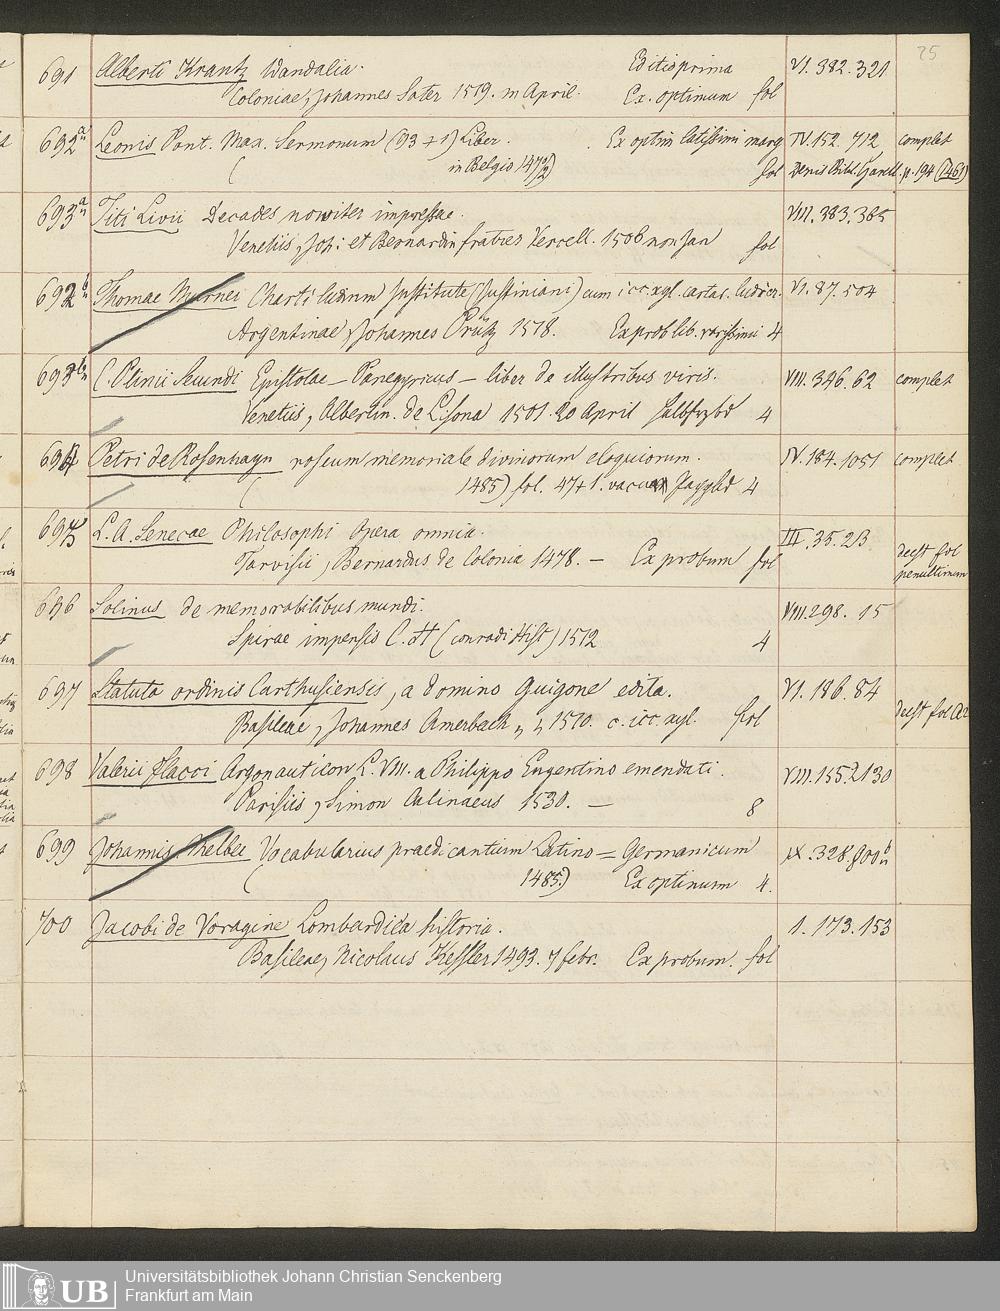 25
691 Alberti Krantz Wandalia. Editio prima VI. 392. 321
Coloniae, Johannes Soter 1519. m April. Ex. optimum fol
692a Leonis Pont. Max. Sermonum (93 + 1) Liber. Ex optim latissimi marg IV. 152. 712 complet
( in Belgio 1471/2) fol Denis Bibl. Garell. p. 194 (1461)
693a Titi Livii Decades noviter impressae. VII. 383. 365
Venetiis, Joh. et Bernardin fratres Vercell. 1506 non Jan fol
692b Thomae Murner Charti ludium Institute (Justiniani) cum icc. xyl. cartar. lusor. VI. 87. 504
Argentinae, Johannes Prüß 1518. Ex prob lib. rarissimi 4
693b C. Plinii Secundi Epistolae – Panegyricus – liber de illustribus viris. VIII. 346. 62 complet
Venetiis, Albertin. de Lisona 1501 20 April 4
694 Petri de Rosenhaym roseum memoriale divinorum eloquiorum. IV. 184. 1051 complet
( 1485) fol. 47 + 1. vacua 4
695 L. A. Senecae Philosophi opera omnia. III. 35. 213
Tarvisii, Bernardus de Colonia 1478. – Ex probum fol deest fol
penultimum
696 Solinus de memorabilibus mundi. VIII. 298. 15
Spirae impensis C. H (conradi Hist) 1512 4
697 Statuta ordinis Carthusiensis, a domino Guigone edita. VI. 186. 84
Basileae, Johannes Amerbach 1510. c. icc xyl. fol deest fol A2
698 Valerii Flacci Argonauticon L. VIII. a Philippo Engentino emendati. VIII. 155. 2130
Parisiis, Simon Colinaeus 1530. – 8
699 Johannis Melber Vocabularius praedicantium Latino = Germanicum IX. 328. 800b
( 1485) Ex optimum 4.
700 Jacobi de Voragine Lombardica historia. I. 173. 153
Basileae, Nicolaus Kessler 1493. 7 febr. Ex probum. fol
UB
Universitätsbibliothek Johann Christian Senckenberg
Frankfurt am Main